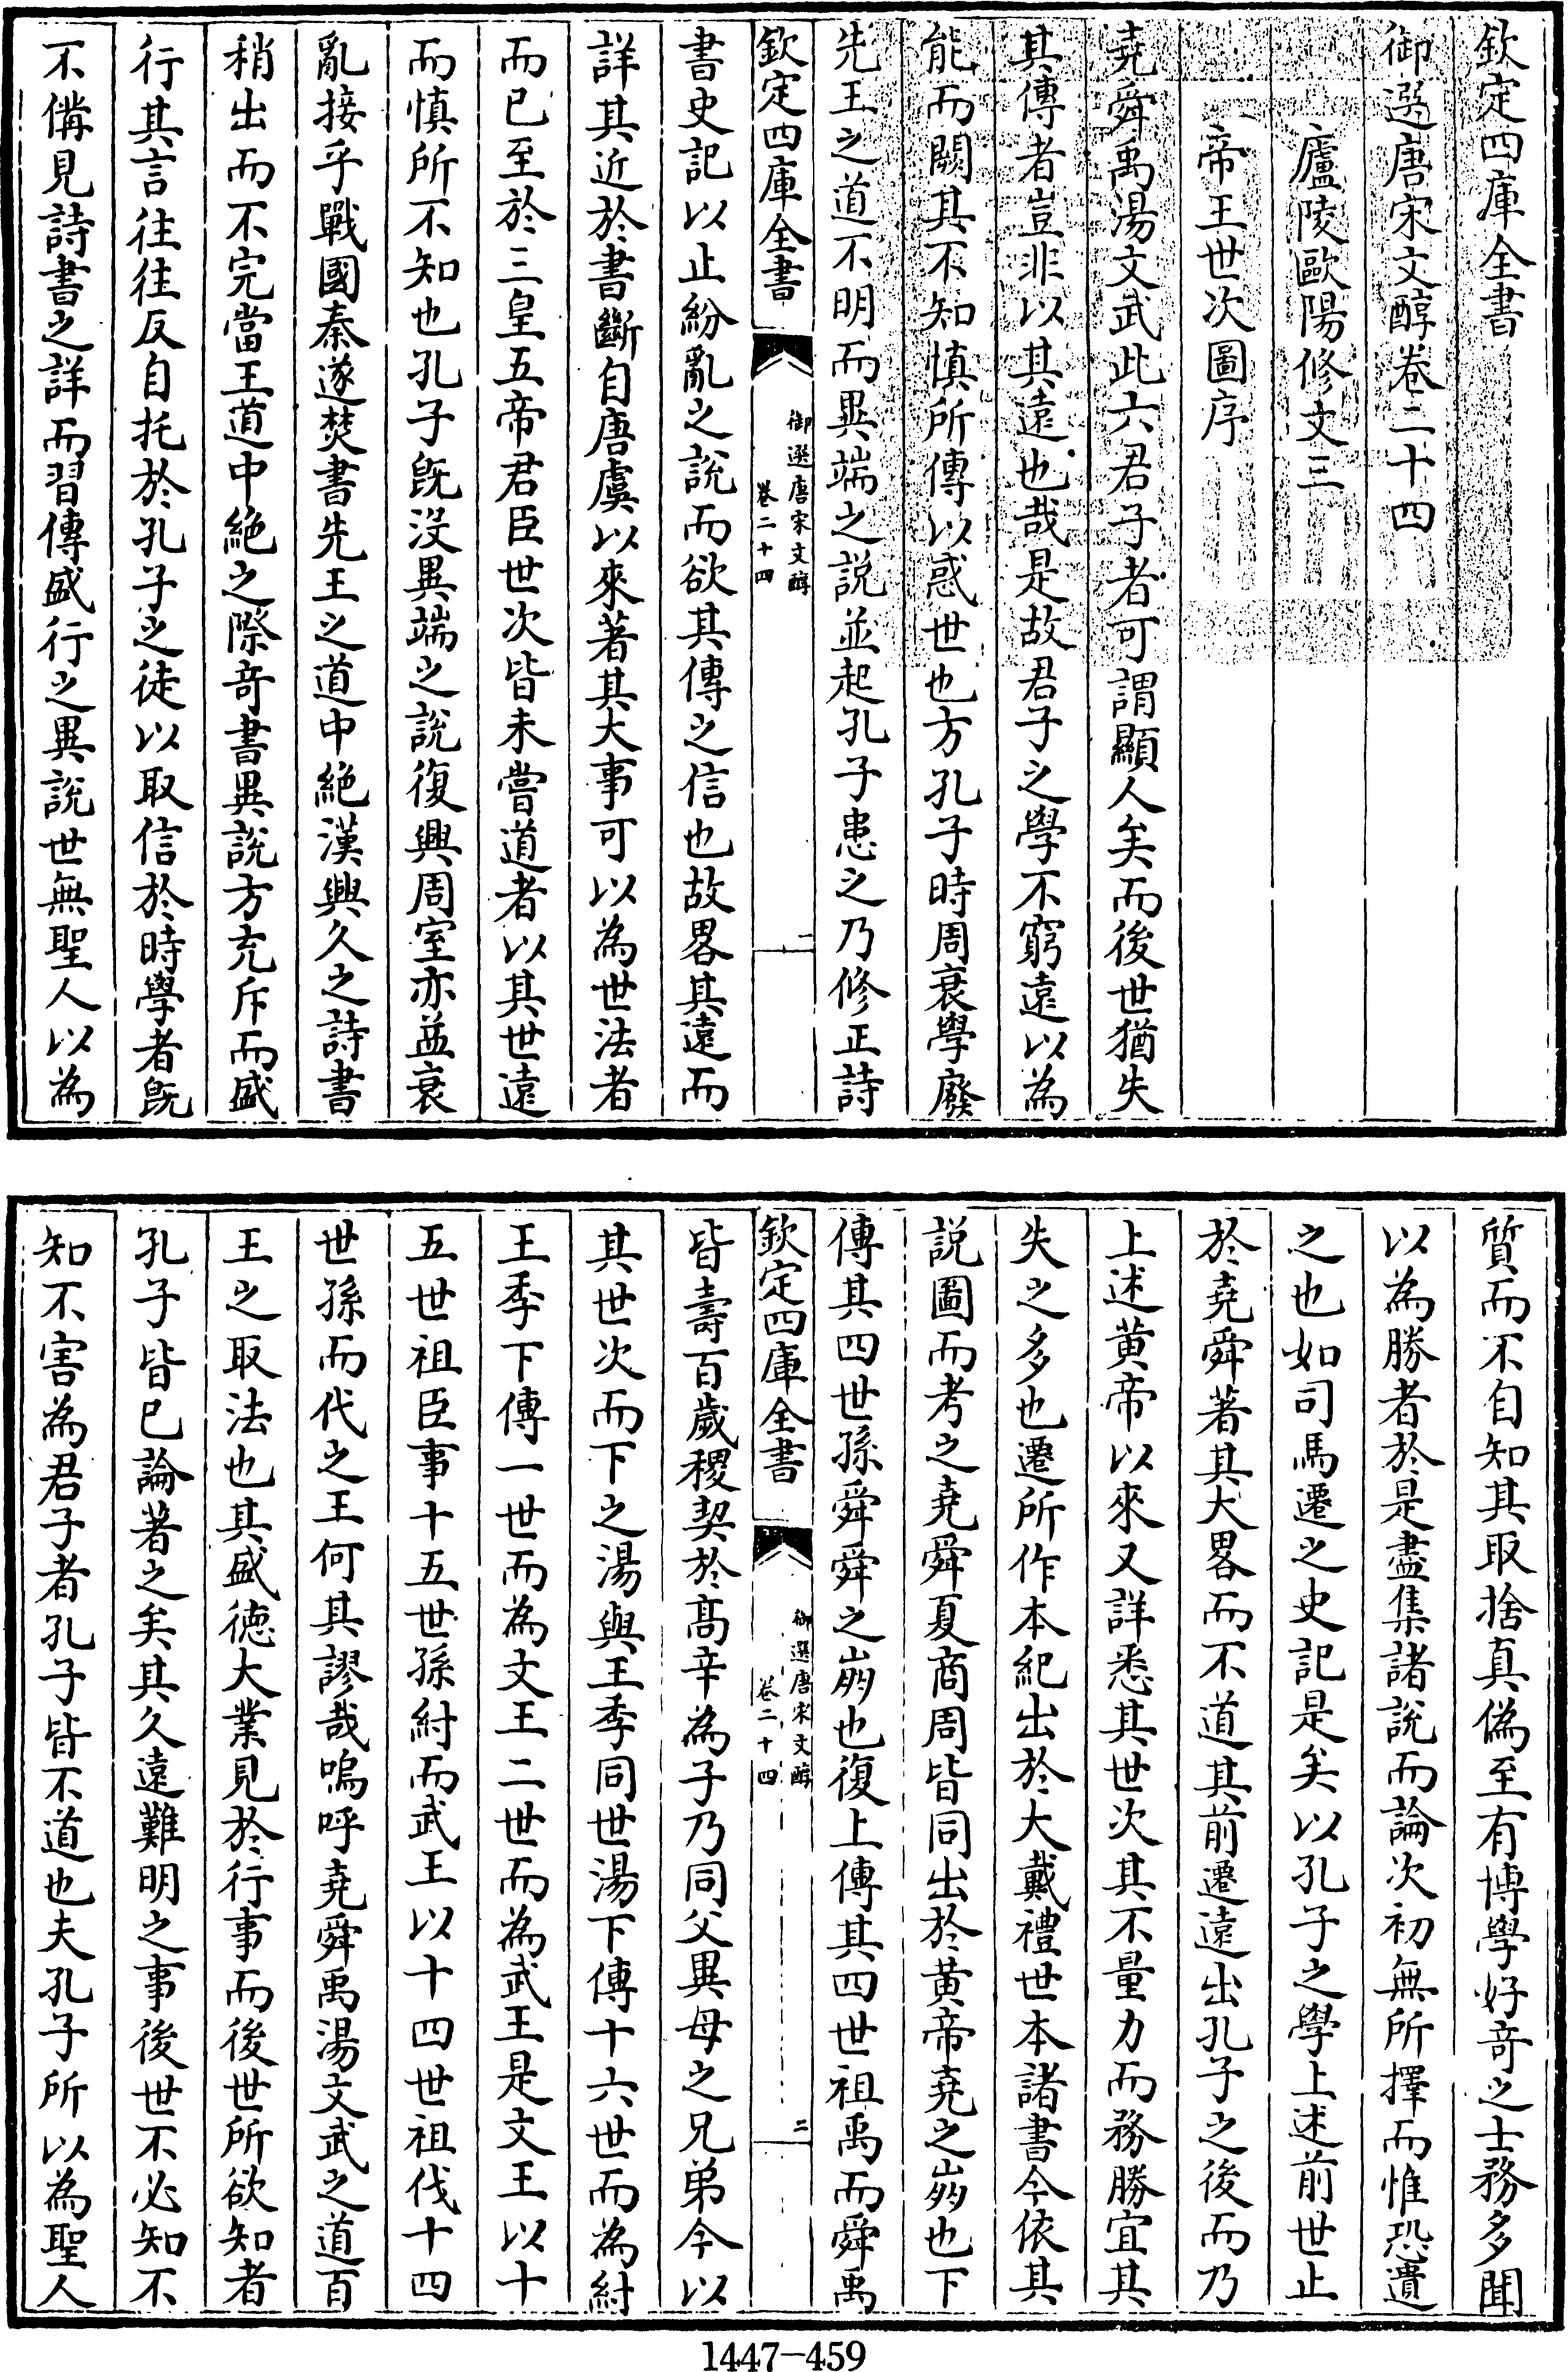 欽定四庫全書
御選唐宋文醇卷二十四
廬陵歐陽修文三
帝王世次圖序
堯舜禹湯文武此六君子者可謂顯人矣而後世猶失
其傳者豈非以其遠也哉是故君子之學不窮遠以為
能而闕其不知慎所傳以惑世也方孔子時周衰學廢
先王之道不明而異端之説並起孔子患之乃修正詩
欽定四庫全書
御選唐宋文醇
卷二十四
一
書史記以止紛亂之說而欲其傳之信也故畧其遠而
詳其近於書斷自唐虞以來著其大事可以為世法者
而已至於三皇五帝君臣世次皆未嘗道者以其世遠
而慎所不知也孔子既没異端之說復興周室亦益衰
亂接乎戰國秦遂焚書先王之道中絶漢興久之詩書
稍出而不完當王道中絶之際奇書異說方充斥而盛
行其言往往反自托於孔子之徒以取信於時學者既
不備見詩書之詳而習傳盛行之異說世無聖人以為
質而不自知其取捨真偽至有博學好奇之士務多聞
以為勝者於是盡集諸說而論次初無所擇而惟恐遺
之也如司馬遷之史記是矣以孔子之學上述前世止
於堯舜著其大畧而不道其前遷遠出孔子之後而乃
上述黄帝以來又詳悉其世次其不量力而務勝宜其
失之多也遷所作本紀出於大戴禮世本諸書今依其
説圖而考之堯舜夏商周皆同出於黄帝堯之崩也下
傳其四世孫舜舜之崩也復上傳其四世祖禹而舜禹
欽定四庫全書
御選唐宋文醇
卷二十四
二
皆壽百歲稷契於髙辛為子乃同父異母之兄弟今以
其世次而下之湯與王季同世湯下傳十六世而為紂
王季下傳一世而為文王二世而為武王是文王以十
五世祖臣事十五世孫紂而武王以十四世祖伐十四
世孫而代之王何其謬哉嗚呼堯舜禹湯文武之道百
王之取法也其盛徳大業見於行事而後世所欲知者
孔子皆已論著之矣其久遠難明之事後世不必知不
知不害為君子者孔子皆不道也夫孔子所以為聖人
1447-459